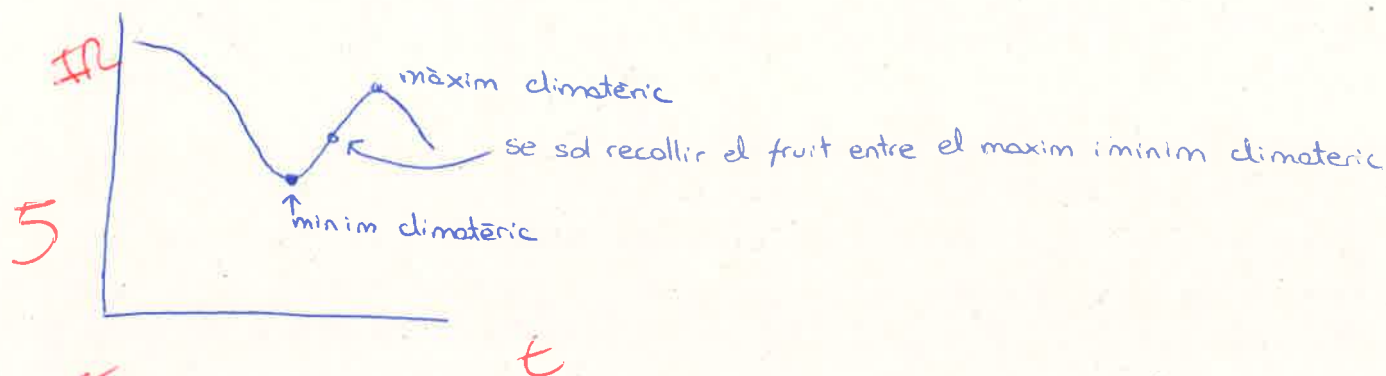 IR
màxim climatèric
se sol recollir el fruit entre el maxim i minim climateric
5
minim climatèric
t